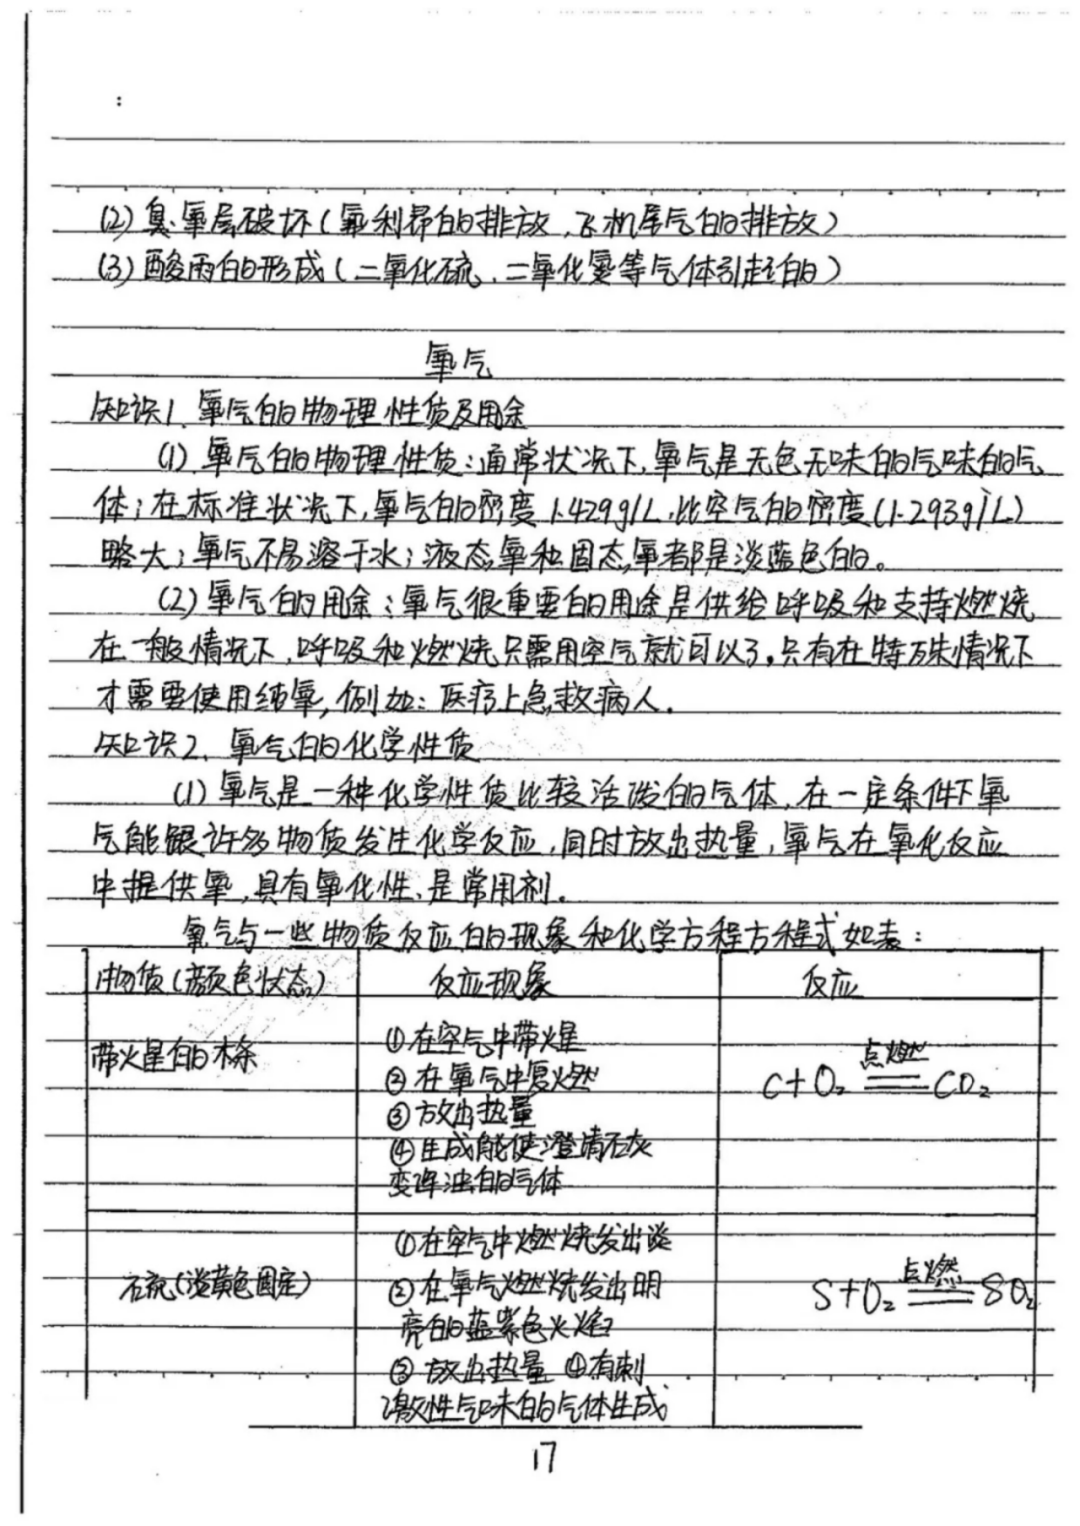 (2) 臭氧层破坏(氟利昂的排放、飞机尾气的排放)
(3) 酸雨的形成(二氧化硫、二氧化氮等气体引起的)
氧气
知识1. 氧气的物理性质及用途
(1) 氧气的物理性质:通常状况下,氧气是无色无味的气味的气
体;在标准状况下,氧气的密度1.429g/L,比空气的密度(1.293g/L)
略大;氧气不易溶于水;液态氧和固态氧都是淡蓝色的。
(2) 氧气的用途:氧气很重要的用途是供给呼吸和支持燃烧
在一般情况下,呼吸和燃烧只需用空气就可以了。只有在特殊情况下
才需要使用纯氧,例如:医疗上急救病人。
知识2. 氧气的化学性质
(1) 氧气是一种化学性质比较活泼的气体,在一定条件下氧
气能跟许多物质发生化学反应,同时放出热量,氧气在氧化反应
中提供氧,具有氧化性、是常用剂。
氧气与一些物质反应的现象和化学方程方程式如表:
物质(颜色状态) 反应现象 反应
带火星的木条
①在空气中带火星
②在氧气中复燃
③放出热量
④生成能使澄清石灰
变浑浊的气体
C+O₂ 点燃 ══ CO₂
石硫(淡黄色固定)
①在空气中燃烧发出淡
②在氧气燃烧发出明
亮的蓝紫色火焰
③放出热量 ④有刺
激性气味的气体生成
S+O₂ 点燃 ══ SO₂
17